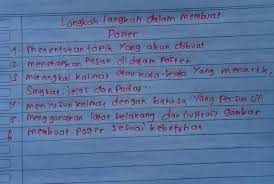 Langkah langkah dalam membuat
Poster
1. Menentukan topik yang akan dibuat
2. menetapkan Pesan di dalam Poster
3 merangkai kalimat atau kata-kata yang menarik,
Singkat, jelas dan Padat
4. menyusun kalimat dengan bahasa yang persuasif
5. menggunakan latar belakang dan ilustrasi gambar
6 membuat poster sesuai kebutuhan